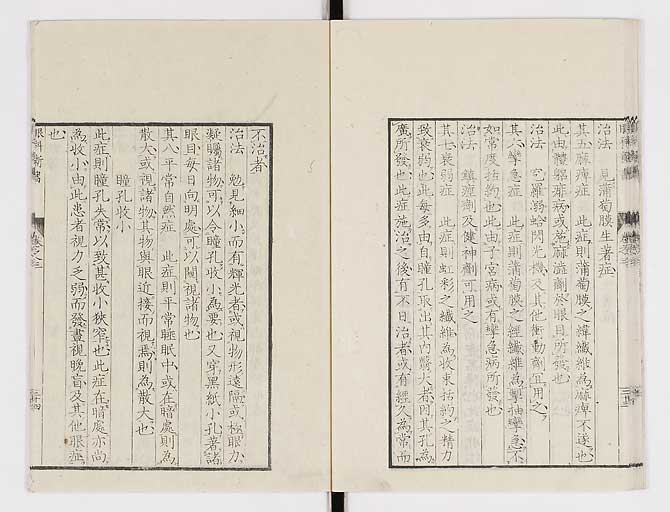 治法　見蒲萄膜生著症
其五麻痺症　此症則蒲萄膜之緯纖維為麻痺不遂也
此由體軀痱病或麻溢劑於眼目所發也
治法　閃光機及其他衝動劑宜用之
其六攣急症　此症則蒲萄膜之經纖維為攣急不
如常度括約也此由子宮病或有攣急病所發也
治法　鎮痙劑及健神劑可用之
其七衰弱症　此症則虹彩之纖維為收束括約之精力
致衰弱也此每多由自瞳孔取出其內翳大者因其孔為
廣所發也此症施治之後有不日治者或有經久為常而
不治者
治法　勉見細小而有輝光者或視物形遠隔或極眼力
凝矚諸物可以令瞳孔收小為要也又穿黑紙小孔著諸
眼目每日向明處可以闚視諸物也
其八平常自然症　此症則平常睡眠中或在暗處則為
散大或視諸物其物與眼近接而視焉則為散大也
瞳孔收小
此症則瞳孔失常以致甚收小狹窄也此症在暗處亦尚
為收小由此患者視力乏弱而發晝視晚盲及其他眼症
也
眼科新篇
卷之三
三十四